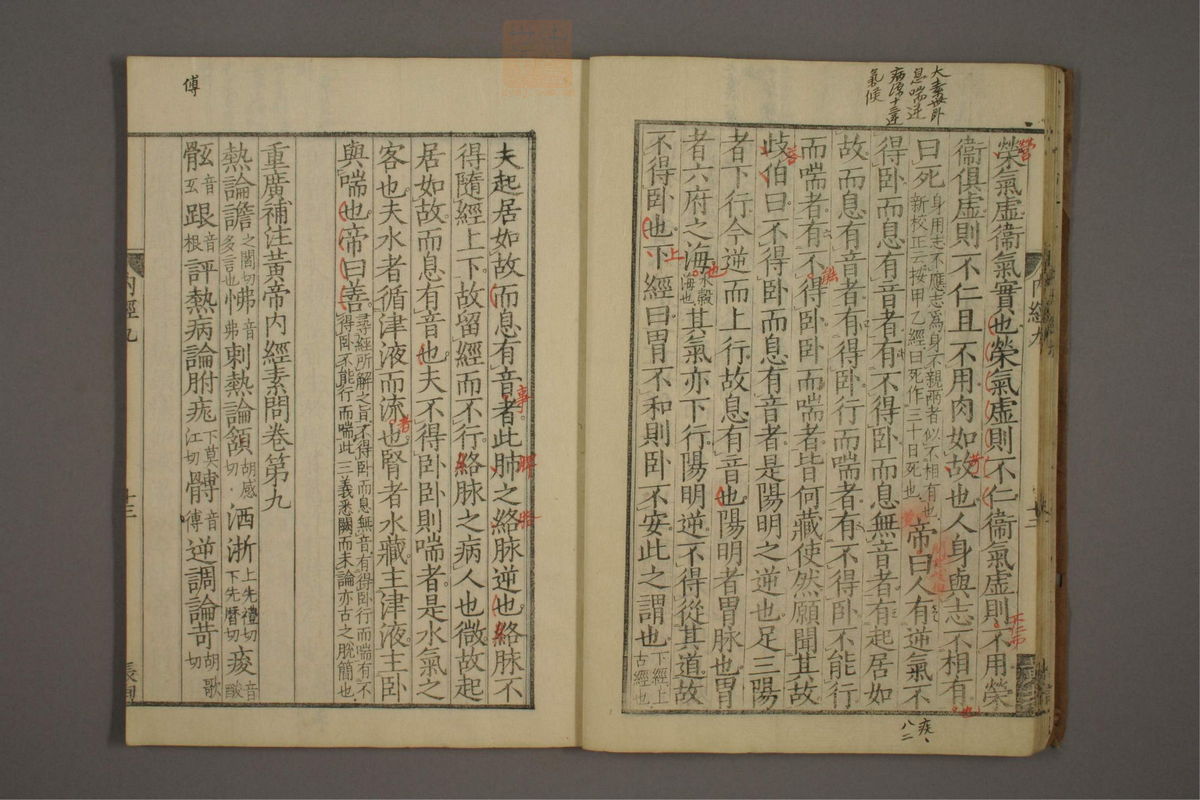 大素卅卧
息喘逆
病源十三逆
氣候
榮氣虛衞氣實也榮氣虛則不仁衞氣虛則不用榮
衞俱虛則不仁且不用肉如故也人身與志不相有
曰死身用志不應志爲身不親兩者似不相有也新校正云按甲乙經曰死作三十日死也帝曰人有逆氣不
得卧而息有音者有不得卧而息無音者有起居如
故而息有音者有得卧行而喘者有不得卧不能行
而喘者有不得卧卧而喘者皆何藏使然願聞其故
歧伯曰不得卧而息有音者是陽明之逆也足三陽
者下行今逆而上行故息有音也陽明者胃脉也胃
者六府之海水穀海也其氣亦下行陽明逆不得從其道故
不得卧也下經曰胃不和則卧不安此之謂也下經上古經也
內經九
夫起居如故而息有音者此肺之絡脉逆也絡脉不
得隨經上下故留經而不行絡脉之病人也微故起
居如故而息有音也夫不得卧卧則喘者是水氣之
客也夫水者循津液而流也腎者水藏主津液主卧
與喘也帝曰善尋經所解之旨不得卧而息無音有得卧行而喘有不得卧不能行而喘此三義悉闕而未論亦古之脫簡也
重廣補注黃帝內經素問卷第九
熱論譫之閻切多言也怫音弗刺熱論頷胡感切洒淅上先禮切下先曆切痠音酸
骩音玄跟音根評熱病論胕痝下莫江切髆音傅逆調論苛胡歌切
傅
內經九
十三